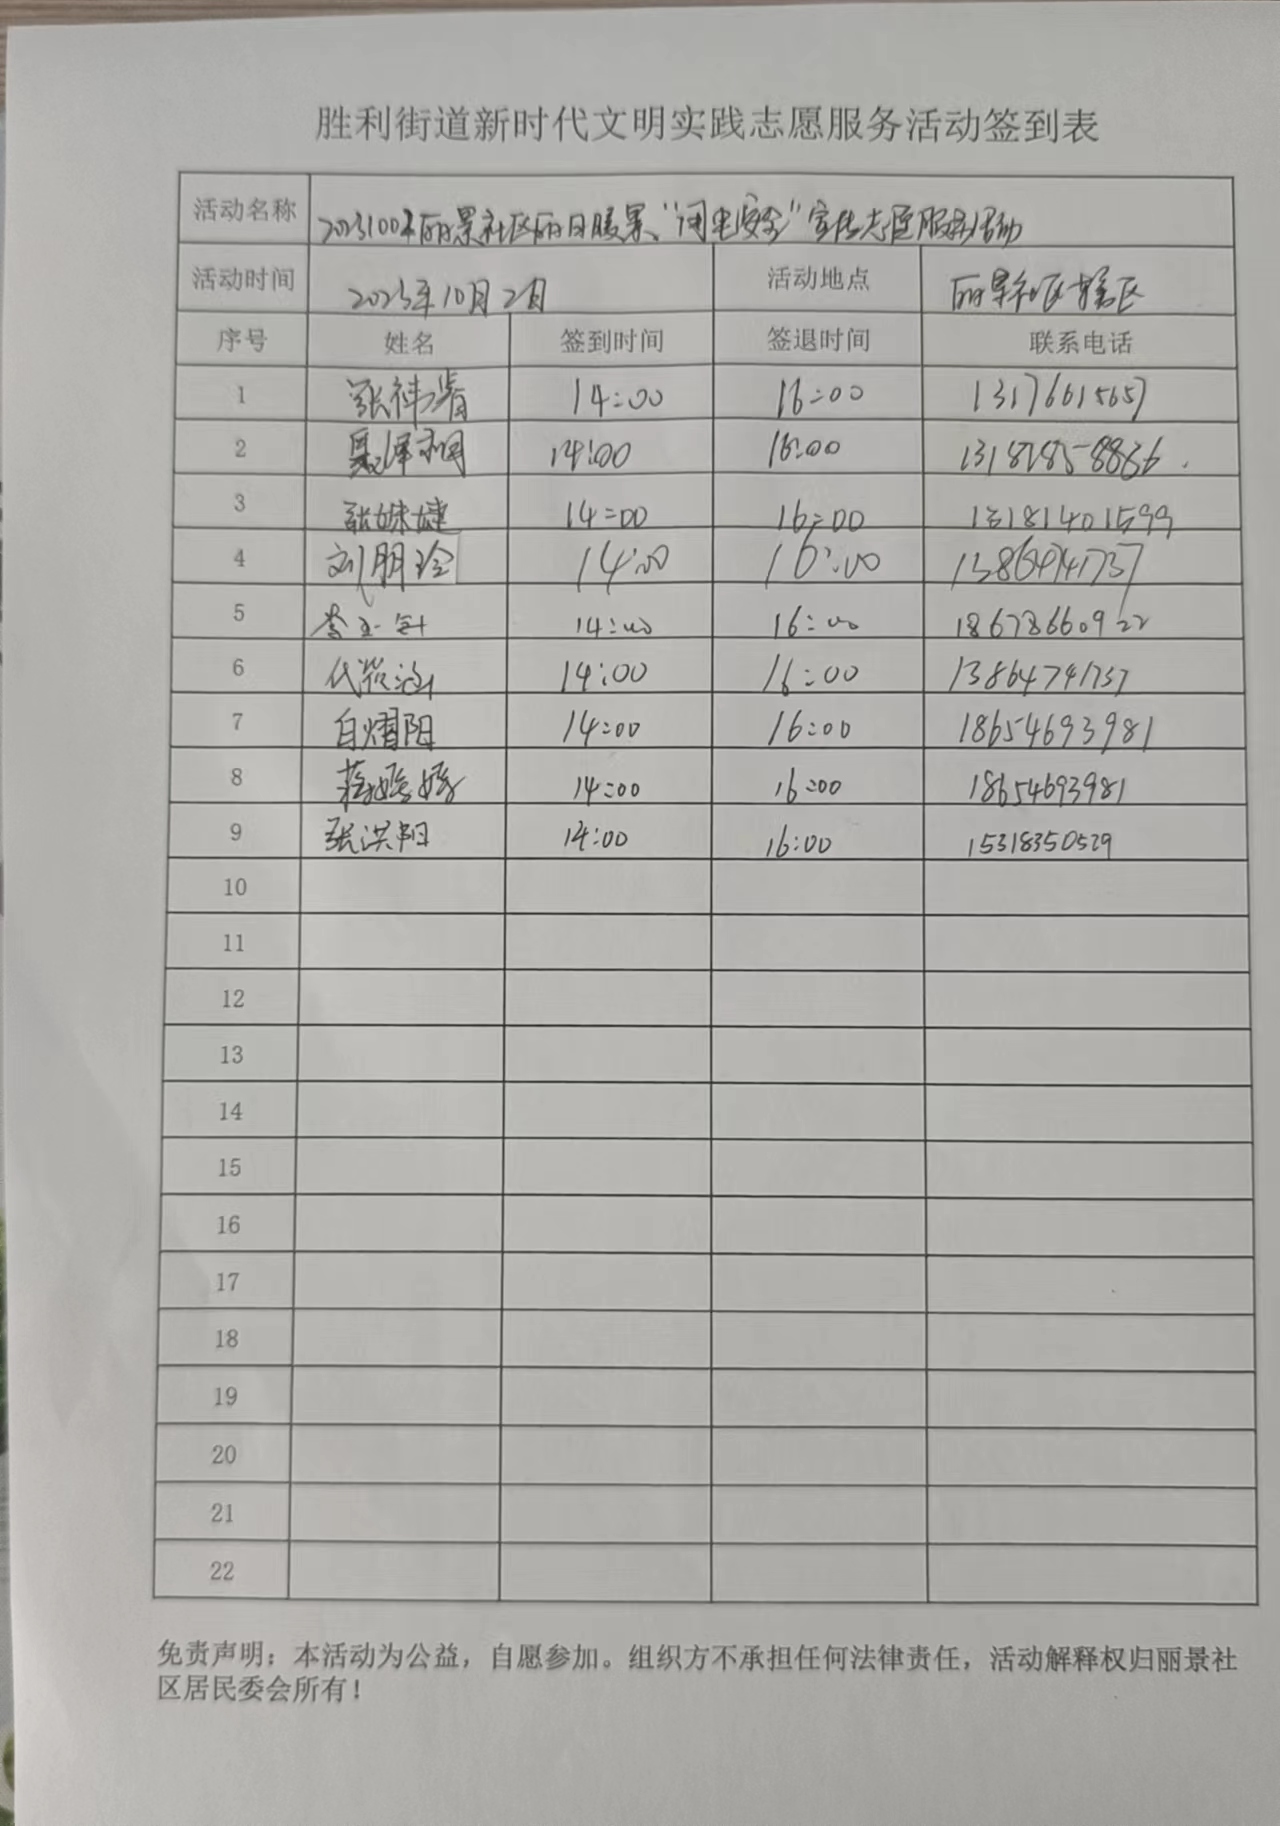 胜利街道新时代文明实践志愿服务活动签到表
活动名称 丽景社区丽日暖景、“用电安全”宣传志愿服务活动
活动时间 2023年10月2日 活动地点 丽景社区辖区
序号 姓名 签到时间 签退时间 联系电话
1 14:00 16:00 13176615657
2 14:00 16:00
3 张姝婕 14:00 16:00 13181401599
4 刘朋玲 14:00 16:00
5 14:00 16:00 18678660922
6 14:00 16:00 13864741737
7 白熠阳 14:00 16:00 18654693981
8 蒋婷婷 14:00 16:00 18654693981
9 张洪阳 14:00 16:00 15318350529
10
11
12
13
14
15
16
17
18
19
20
21
22
免责声明：本活动为公益，自愿参加。组织方不承担任何法律责任，活动解释权归丽景社
区居民委会所有！